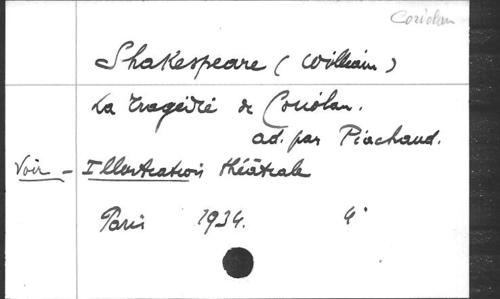 Coriolan
Shakespeare (William)
La Tragédie de Coriolan.
ad. par Piachaud.
Voir - Illustration théâtrale
Paris 1934. 4°